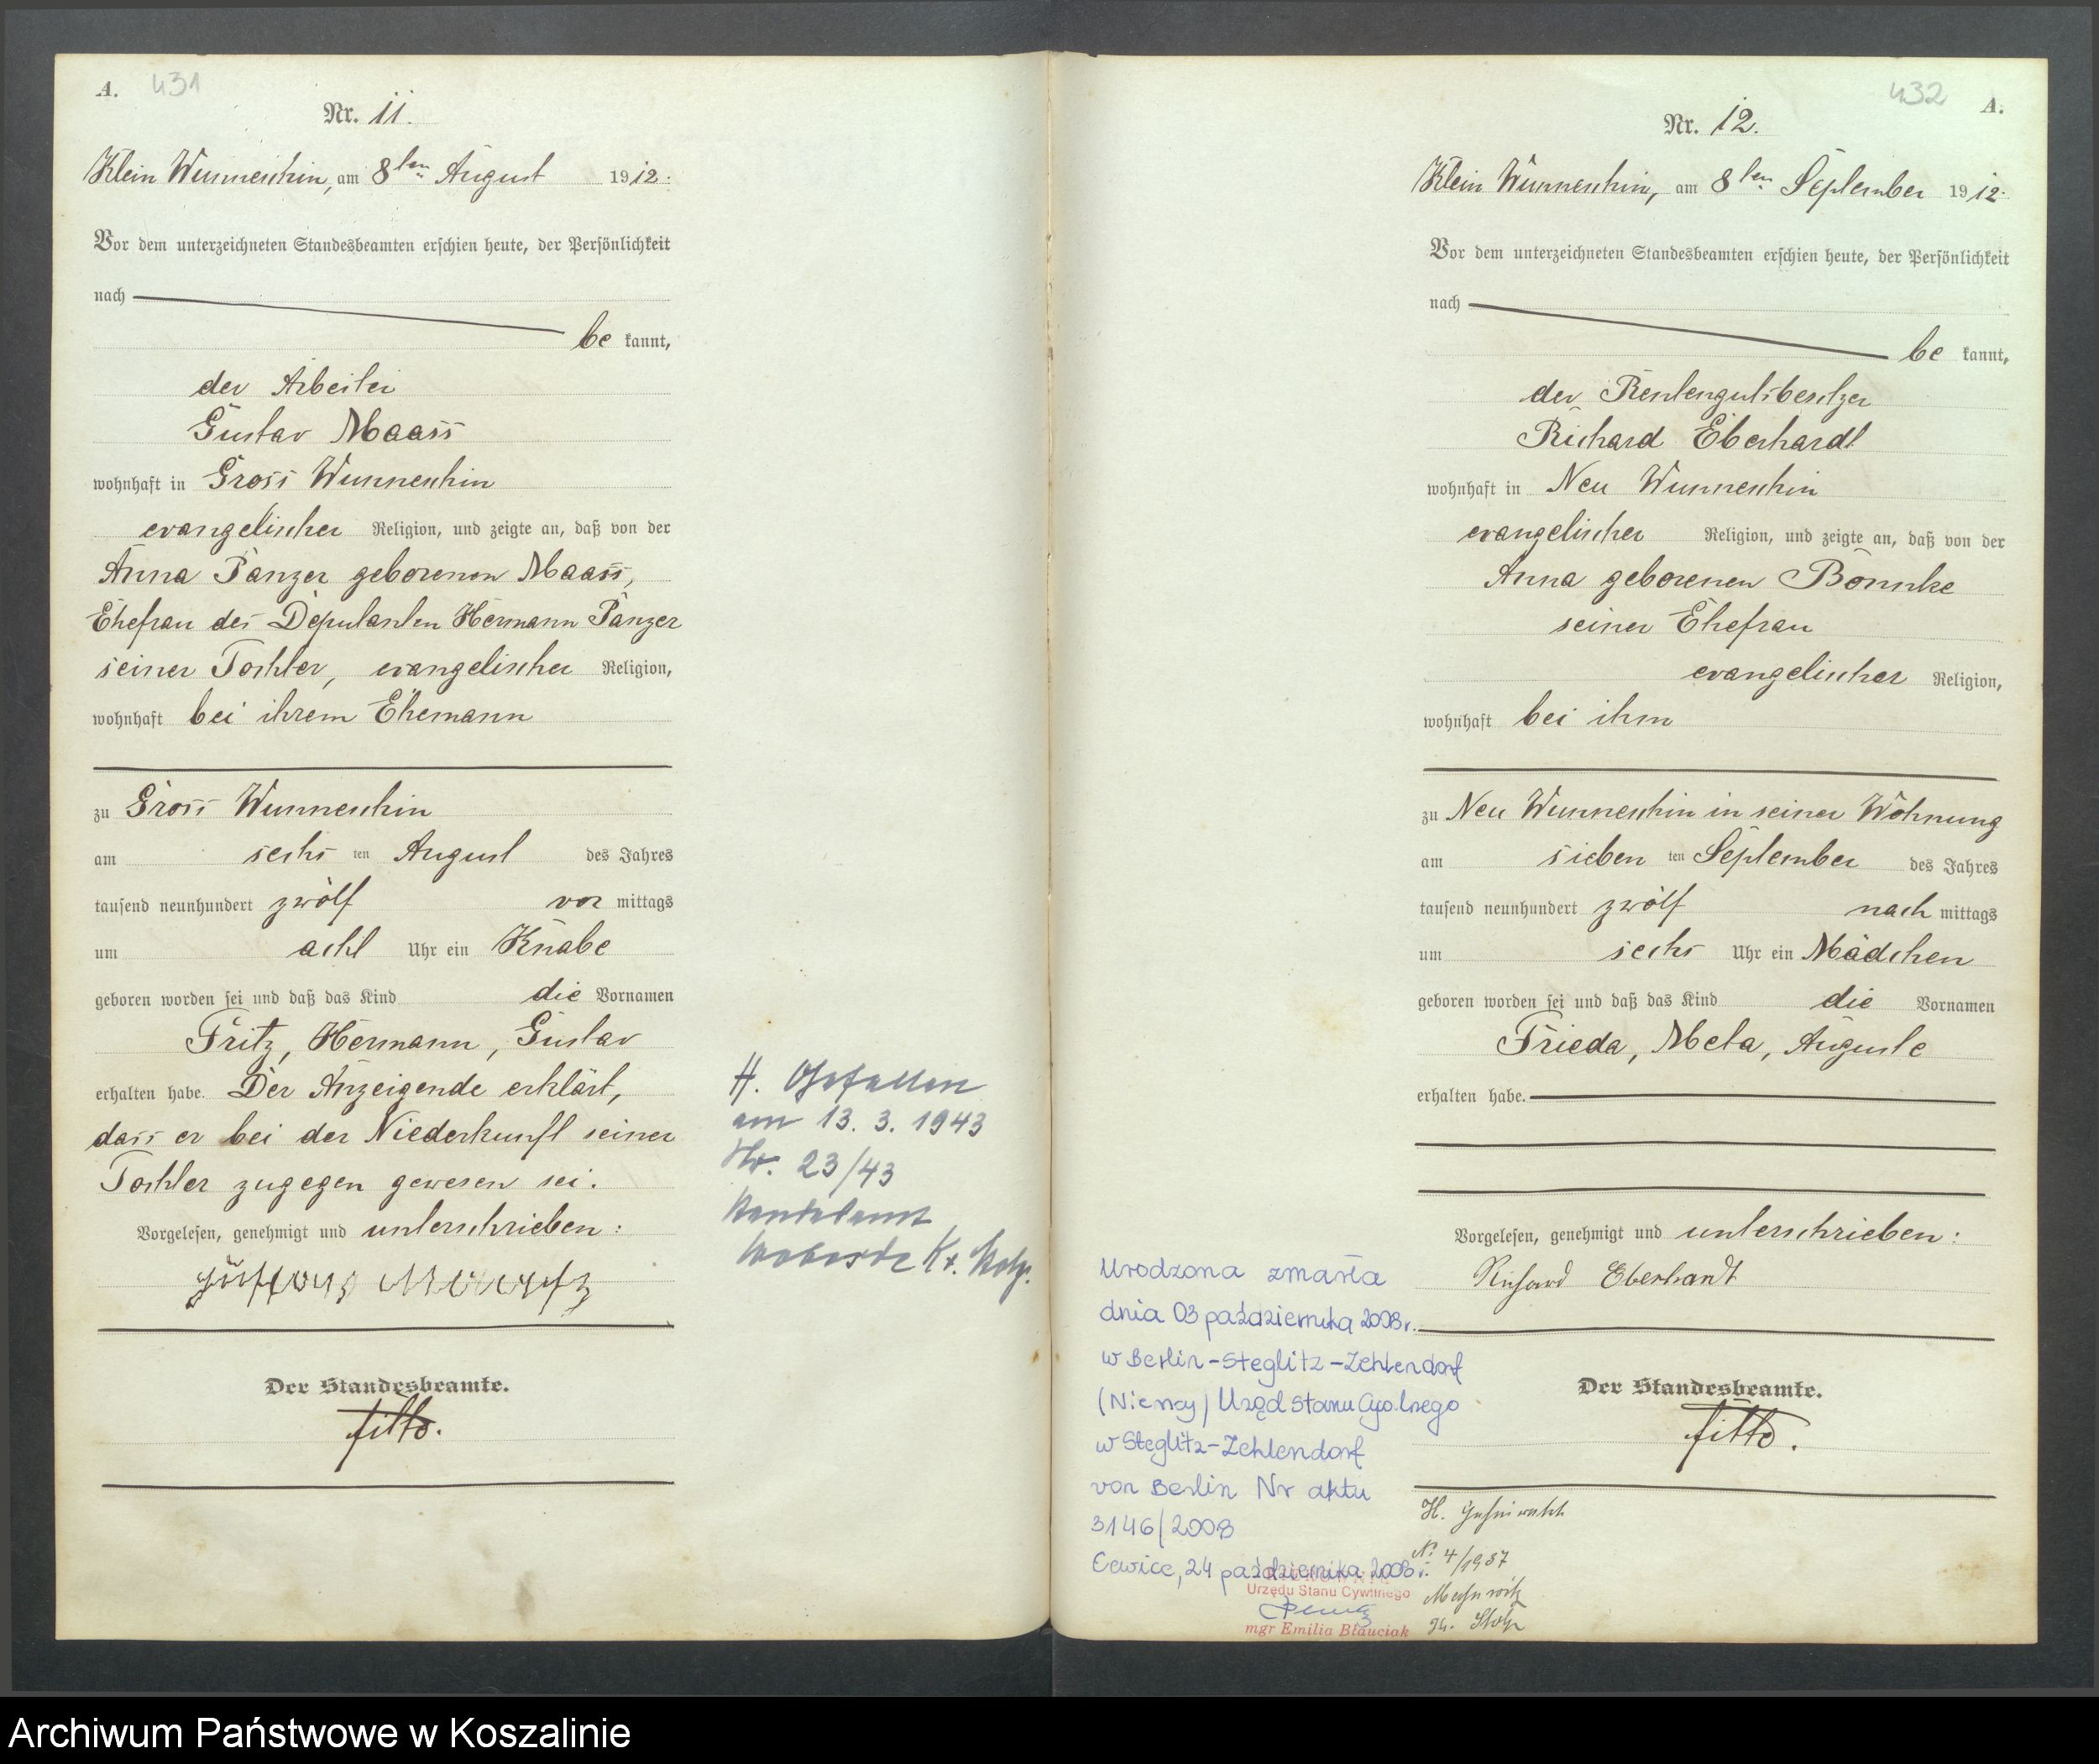 A. 431
Nr. 11.
Klein Wunneschin, am 8ten August 1912.
Vor dem unterzeichneten Standesbeamten erschien heute, der Persönlichkeit
nach
be kannt,
der Arbeiter
Gustav Maass
wohnhaft in Gross Wunneschin
evangelischer Religion, und zeigte an, daß von der
Anna Panzer geborenen Maass,
Ehefrau des Deputanten Hermann Panzer
seiner Tochter, evangelischer Religion,
wohnhaft bei ihrem Ehemann
zu Gross Wunneschin
am sechs ten August des Jahres
tausend neunhundert zwölf vor mittags
um acht Uhr ein Knabe
geboren worden sei und daß das Kind die Vornamen
Fritz, Hermann, Gustav
erhalten habe. Der Anzeigende erklärt,
dass er bei der Niederkunft seiner
Tochter zugegen gewesen sei.
Vorgelesen, genehmigt und unterschrieben:
Der Standesbeamte.
H. Gefallen
am 13. 3. 1943
Nr. 23/43
Standesamt
Kr. Stolp.
432 A.
Nr. 12.
Klein Wunneschin, am 8ten September 1912.
Vor dem unterzeichneten Standesbeamten erschien heute, der Persönlichkeit
nach
be kannt,
der Rentengutsbesitzer
Richard Eberhardt
wohnhaft in Neu Wunneschin
evangelischer Religion, und zeigte an, daß von der
Anna geborenen Bonnke
seiner Ehefrau
evangelischer Religion,
wohnhaft bei ihm
zu Neu Wunneschin in seiner Wohnung
am sieben ten September des Jahres
tausend neunhundert zwölf nach mittags
um sechs Uhr ein Mädchen
geboren worden sei und daß das Kind die Vornamen
Frieda, Meta, Auguste
erhalten habe.
Vorgelesen, genehmigt und unterschrieben:
Richard Eberhardt
Der Standesbeamte.
Urodzona zmarła
dnia 03 października 2008r.
w Berlin-Steglitz-Zehlendorf
(Niemcy) Urząd Stanu Cywilnego
w Steglitz-Zehlendorf
von Berlin Nr aktu
3146/2008
Cewice, 24 października 2008 r.
Urzędu Stanu Cywilnego
mgr Emilia Błauciak
H.
Nr 4/1937
Stolp
Archiwum Państwowe w Koszalinie